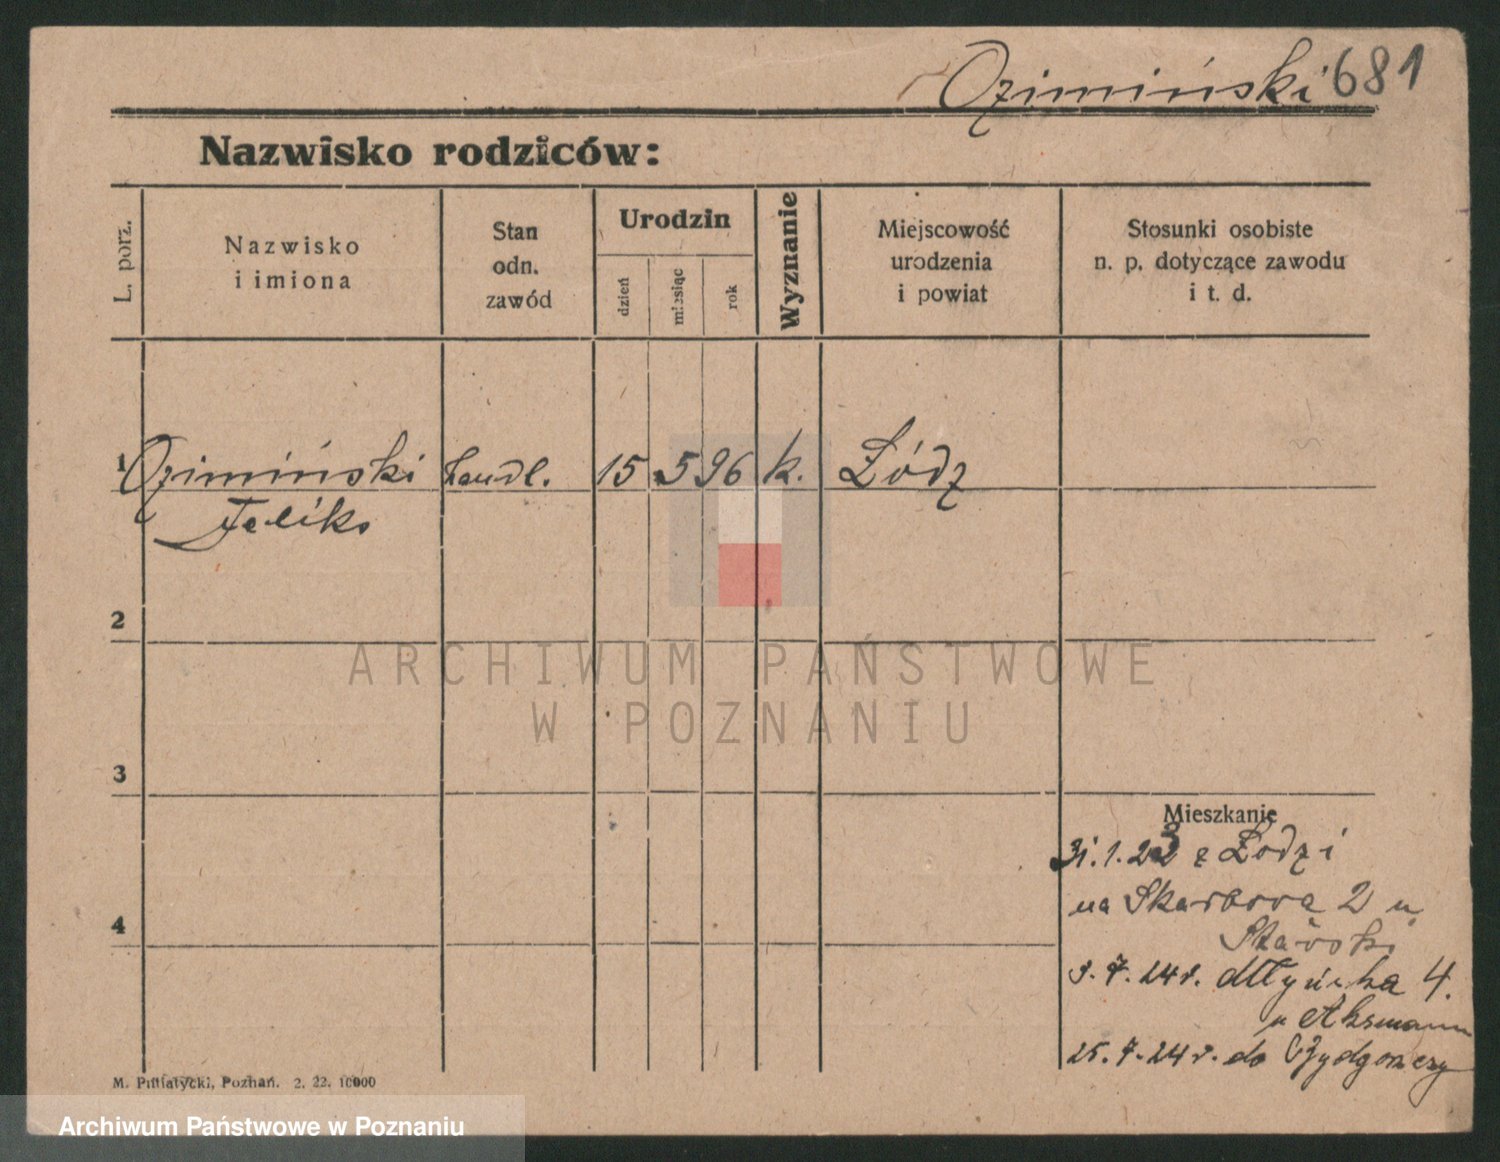 Ozimiński 681
Nazwisko rodziców:
L. porz.
Nazwisko
i imiona
Stan
odn.
zawód
Urodzin
dzień
miesiąc
rok
Wyznanie
Miejscowość
urodzenia
i powiat
Stosunki osobiste
n. p. dotyczące zawodu
i t. d.
1 Ozimiński handl. 15 5 96 k. Łódz
Feliks
2
ARCHIWUM PAŃSTWOWE
W POZNANIU
3
Mieszkanie
31.1.23 z Łodzi
na Skarbowa 2 u
4
3.7.24r. Młyńska 4.
u Aksmann
25.7.24r. do Bydgoszczy
M. Putiatycki, Poznań. 2. 22. 10000
Archiwum Państwowe w Poznaniu